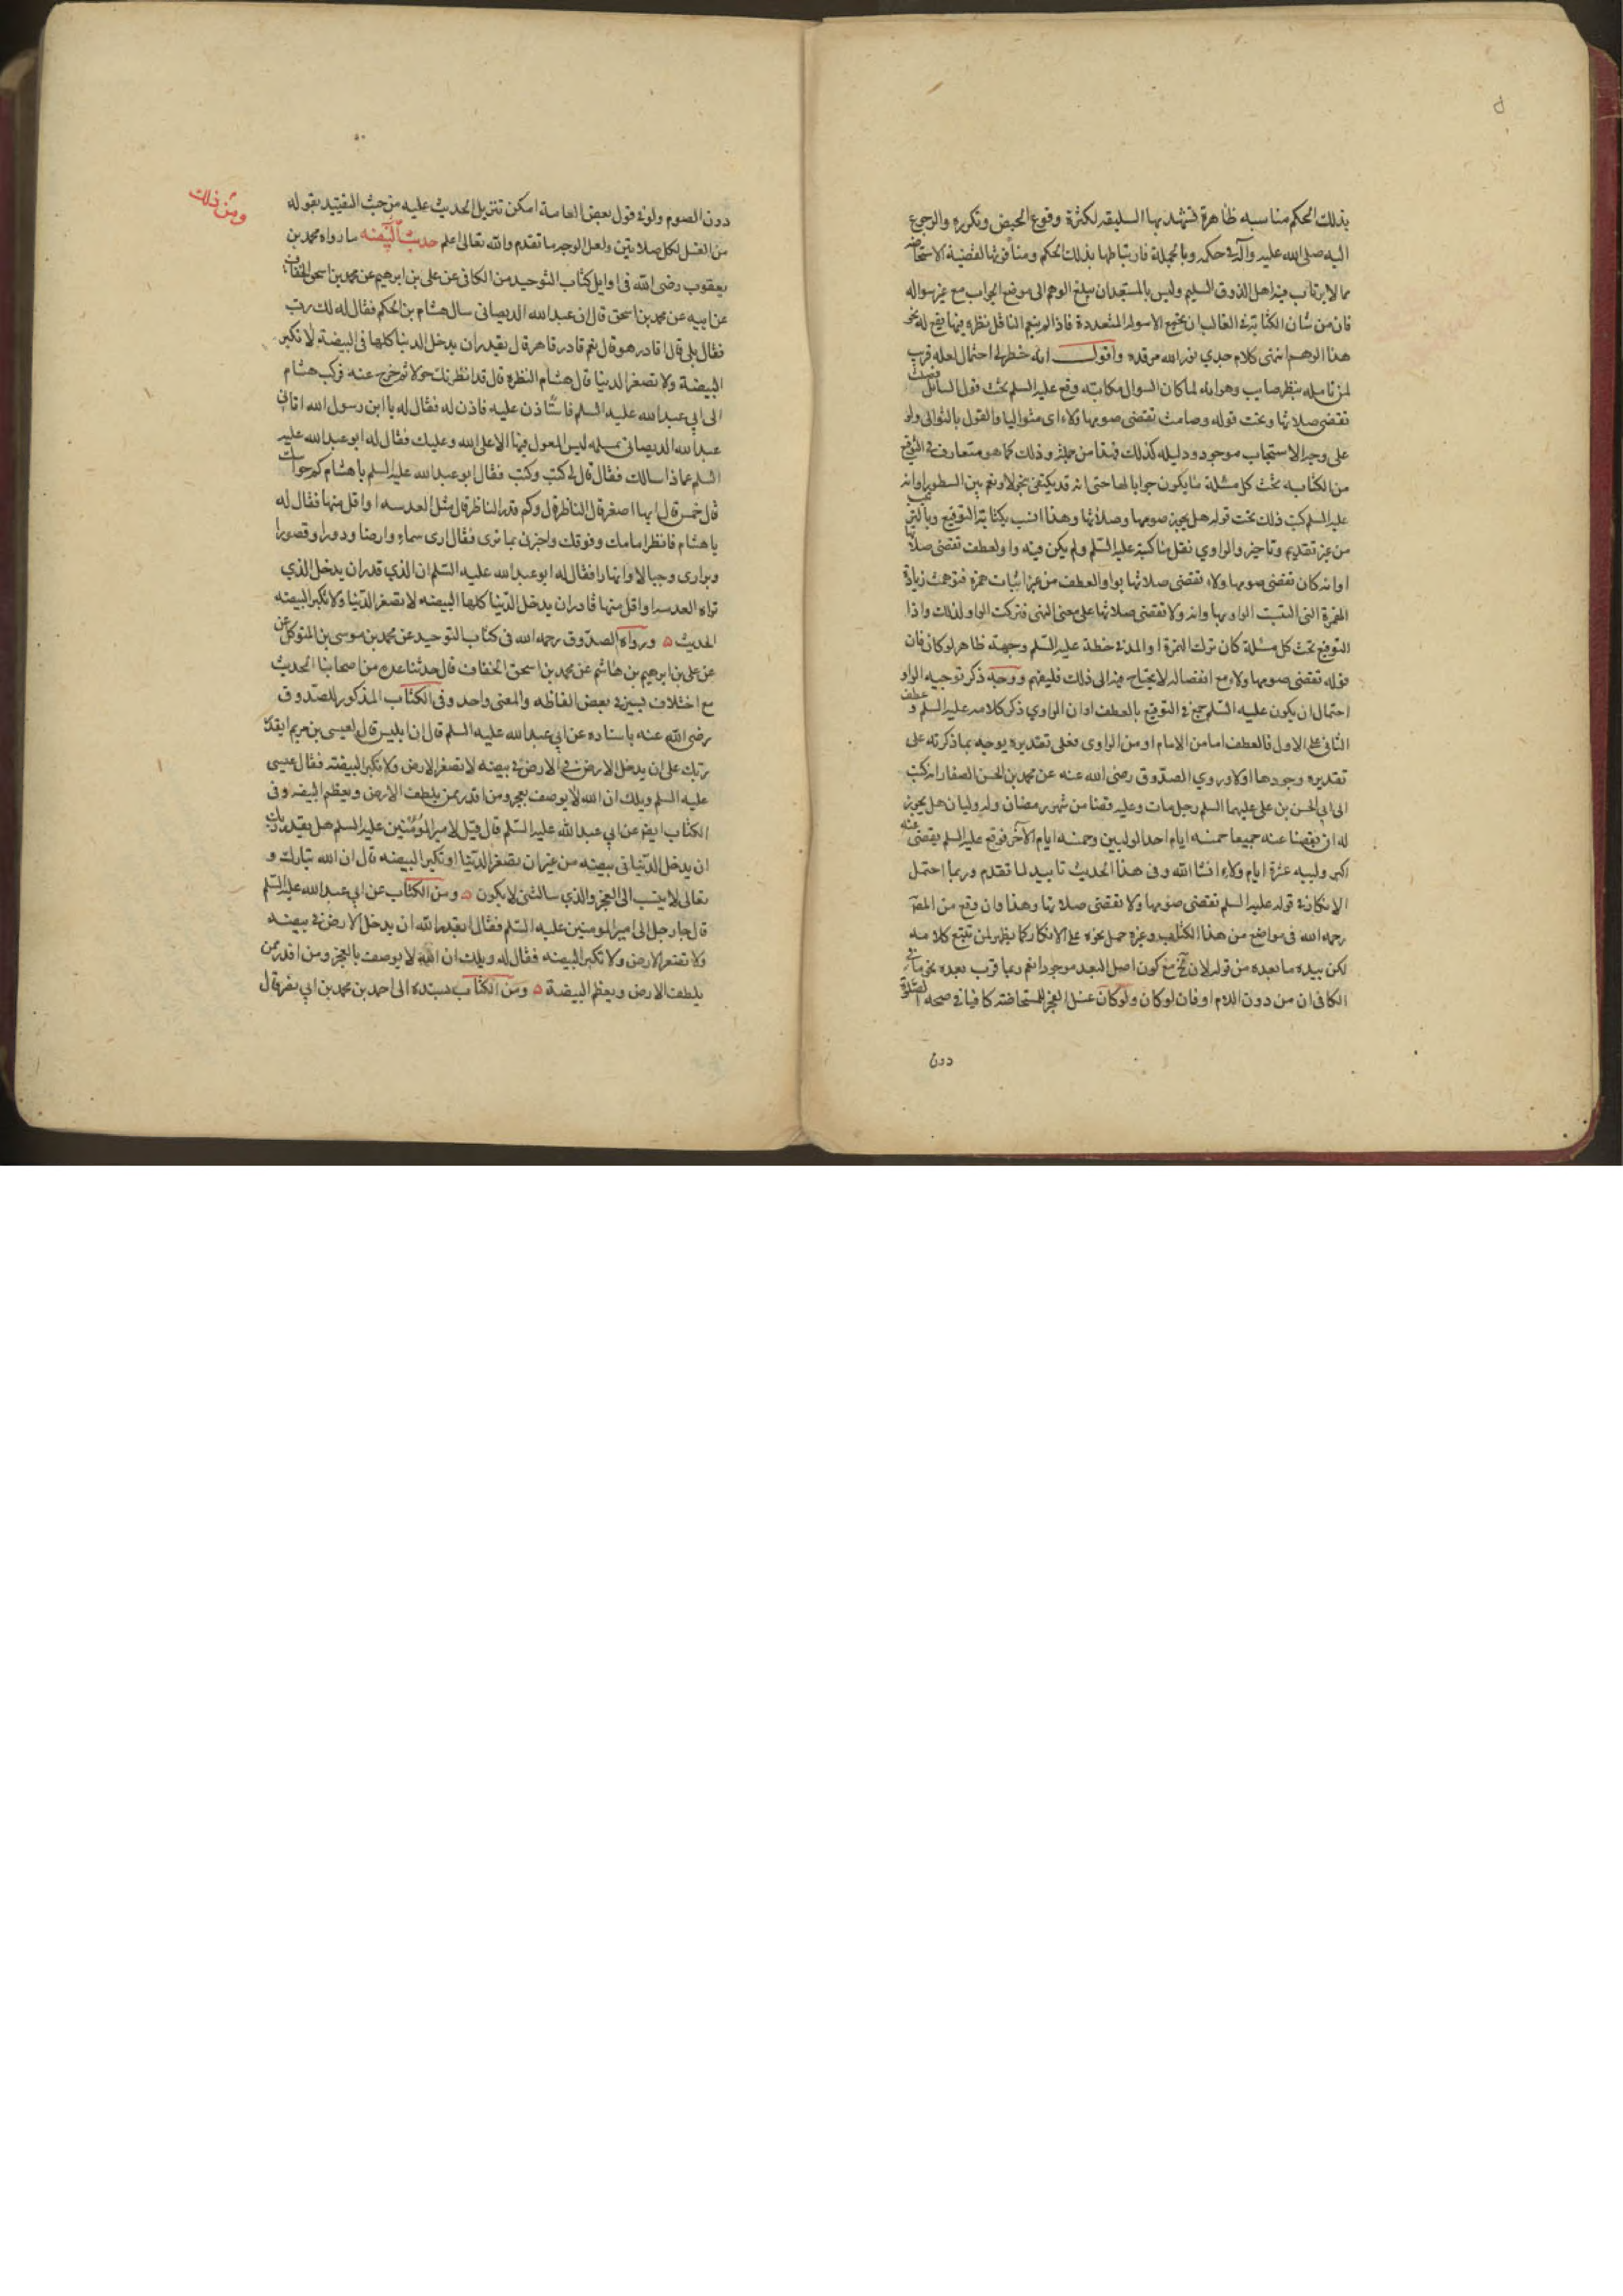 بذلك الحكم مناسبه ظاهرة تشهد بها السليقه لكثرة وقوع الحيض وتكرره والرجوع
اليه صلى الله عليه وآله فى حكمه وبالجملة فارتباطها بذلك الحكم ومنافرتها لقضية الاستحاضه
مما لا يرتاب فيه اهل الذوق السليم وليس بالمستبعد ان يبلغ الوهم الى موضع الجواب مع غير سواله
فان من شان الكتابة فى الغالب ان يجتمع الاسوله المتعددة فاذا لم ينعم الناقل نظره فيها يقع له نحو
هذا الوهم انتهى كلام جدي نور الله مرقده واقول انه خطر لى احتمال لعله قريب
لمن تامله بنظر صايب وهو انه لما كان السوال مكاتبه وقع عليه السلم تحت قول السائل فصلت
تقضى صلاتها وتحت قوله وصامت تقضى صومها ولاء اى متواليا والقول بالتوالى ولو
على وجه الاستحباب موجود ودليله كذلك فهذا من جملته وذلك كما هو متعارف فى التوقيع
من الكتابه تحت كل مسئلة ما يكون جوابا لها حتى انه قد يكتفى بنحو لا ونعم بين السطور او انه
عليه السلم كتب ذلك تحت قوله هل يجوز صومها وصلاتها وهذا انسب بكتابة التوقيع وبالترتيب
من غير تقديم وتاخير والراوي نقل ما كتبه عليه السلم ولم يكن فيه واو لعطف تقضى صلاتها
او انه كان تقضى صومها ولاء تقضى صلاتها بواو العطف من غير اثبات همزة فتوهمت زيادة
الهمزة التى التبست الواو بها وانه ولا تقضى صلاتها على معنى النهى فتركت الواو لذلك واذا
التوقيع تحت كل مسئلة كان ترك الهمزة او المد فى خطه عليه السلم وجهه ظاهر لو كان فان
قوله تقضى صومها ولاء مع انفصاله لا يحتاج فيه الى ذلك فليفهم ووجه ذكر توجيه الواو
احتمال ان يكون عليه السلم جمع فى التوقيع بالعطف او ان الراوي ذكر كلامه عليه السلم و عطف
الثانى على الاول فالعطف اما من الامام او من الراوى فعلى تقديره يوجه بما ذكرته على
تقديره وجودها اولا وروي الصدوق رضى الله عنه عن محمد بن الحسن الصفار انه كتب
الى ابى الحسن بن على عليهما السلم رجل مات وعليه قضاء من شهر رمضان وله وليان هل يجوز
له ان يقضيا عنه جميعا خمسه ايام احد الوليين وخمسه ايام الآخر فوقع عليه السلم يقضى عنه
اكبر ولييه عشرة ايام ولاء انشا الله وفى هذا الحديث تاييد لما تقدم وربما احتمل
الانكار فى قوله عليه السلم تقضى صومها ولا تقضى صلاتها وهذا وان وقع من المص
رحمه الله فى مواضع من هذا الكتاب وغيره حمل نحوه على الانكار كما يظهر لمن تتبع كلامه
لكن يبعده ما بعده من قوله لان الخ مع كون اصل البعد موجودا نعم ربما قرب بعده نحو ما فى
الكافى ان من دون اللام او فان لو كان ولو كان غسل الفجر للمستحاضه كافيا فى صحه الصلوة
دون
دون الصوم ولو فى قول بعض العامة امكن تنزيل الحديث عليه من حيث التقييد بقوله
من الغسل لكل صلاتين ولعل الوجه ما تقدم والله تعالى اعلم حديث البيضه ما رواه محمد بن
ومن ذلك
يعقوب رضى الله فى اوايل كتاب التوحيد من الكافى عن على بن ابرهيم عن محمد بن اسحق الخفاف
عن ابيه عن محمد بن اسحق قال ان عبد الله الديصانى سال هشام بن الحكم فقال له لك رب
فقال بلى قال اقادر هو قال نعم قادر قاهر قال يقدر ان يدخل الدنيا كلها فى البيضة لا تكبر
البيضة ولا تصغر الدنيا قال هشام النظره قال قد انظرتك حولا ثم خرج عنه فركب هشام
الى ابي عبد الله عليه السلم فاستاذن عليه فاذن له فقال له يا ابن رسول الله اتانى
عبد الله الديصانى بمسله ليس المعول فيها الا على الله وعليك فقال له ابو عبد الله عليه
السلم عماذا سالك فقال قال لى كيت وكيت فقال ابو عبد الله عليه السلم يا هشام كم حواسك
قال خمس قال ايها اصغر قال الناظر قال وكم قدر الناظر قال مثل العدسه او اقل منها فقال له
يا هشام فانظر امامك وفوقك واخبرنى بما ترى فقال ارى سماء وارضا ودورا وقصورا
وبرارى وجبالا وانهارا فقال له ابو عبد الله عليه السلم ان الذي قدر ان يدخل الذي
تراه العدسه او اقل منها قادر ان يدخل الدنيا كلها البيضه لا تصغر الدنيا ولا تكبر البيضه
الحديث ه ورواه الصدوق رحمه الله فى كتاب التوحيد عن محمد بن موسى بن المتوكل عن
عن على بن ابرهيم بن هاشم عن محمد بن اسحق الخفاف قال حدثنا عدة من اصحابنا الحديث
مع اختلاف يسير فى بعض الفاظه والمعنى واحد وفى الكتاب المذكور للصدوق
رضى الله عنه باسناده عن ابي عبد الله عليه السلم قال ان ابليس قال لعيسى بن مريم ايقدر
ربك على ان يدخل الارض فى الارض فى بيضه لا تصغر الارض ولا تكبر البيضه فقال عيسى
عليه السلم ويلك ان الله لا يوصف بعجز ومن اقدر ممن يلطف الارض ويعظم البيضه وفى
الكتاب ايضا عن ابي عبد الله عليه السلم قال قيل لامير المؤمنين عليه السلم هل يقدر ربك
ان يدخل الدنيا فى بيضه من غير ان تصغر الدنيا او تكبر البيضه قال ان الله تبارك و
تعالى لا ينسب الى العجز والذي سالتنى لا يكون ه ومن الكتاب عن ابي عبد الله عليه السلم
قال جاء رجل الى امير المومنين عليه السلم فقال ايقدر الله ان يدخل الارض فى بيضه
ولا تصغر الارض ولا تكبر البيضه فقال له ويلك ان الله لا يوصف بالعجز ومن اقدر ممن
يلطف الارض ويعظم البيضة ه ومن الكتاب بسنده الى احمد بن محمد بن ابي نصر قال